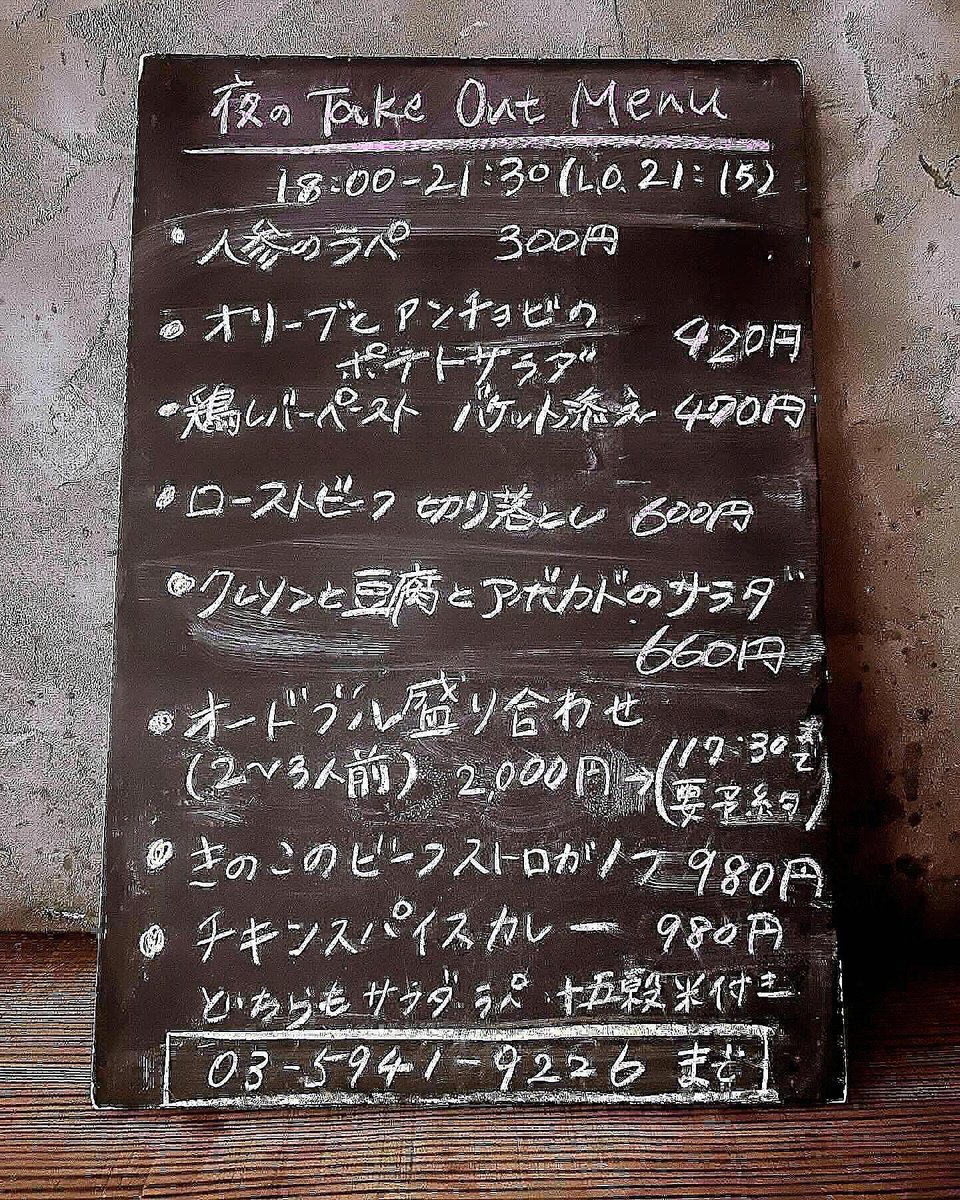 夜の Take Out Menu
18:00-21:30(L.O. 21:15)
・人参のラペ 300円
・オリーブとアンチョビの
ポテトサラダ 420円
・鶏レバーペースト バケット添え 470円
・ローストビーフ 切り落とし 600円
・クレソンと豆腐とアボカドのサラダ
660円
・オードブル盛り合わせ
(2~3人前) 2,000円→(17:30まで
要予約)
・きのこのビーフストロガノフ 980円
・チキンスパイスカレー 980円
どちらもサラダ、ラペ 十五穀米付き
03-5941-9226 まで